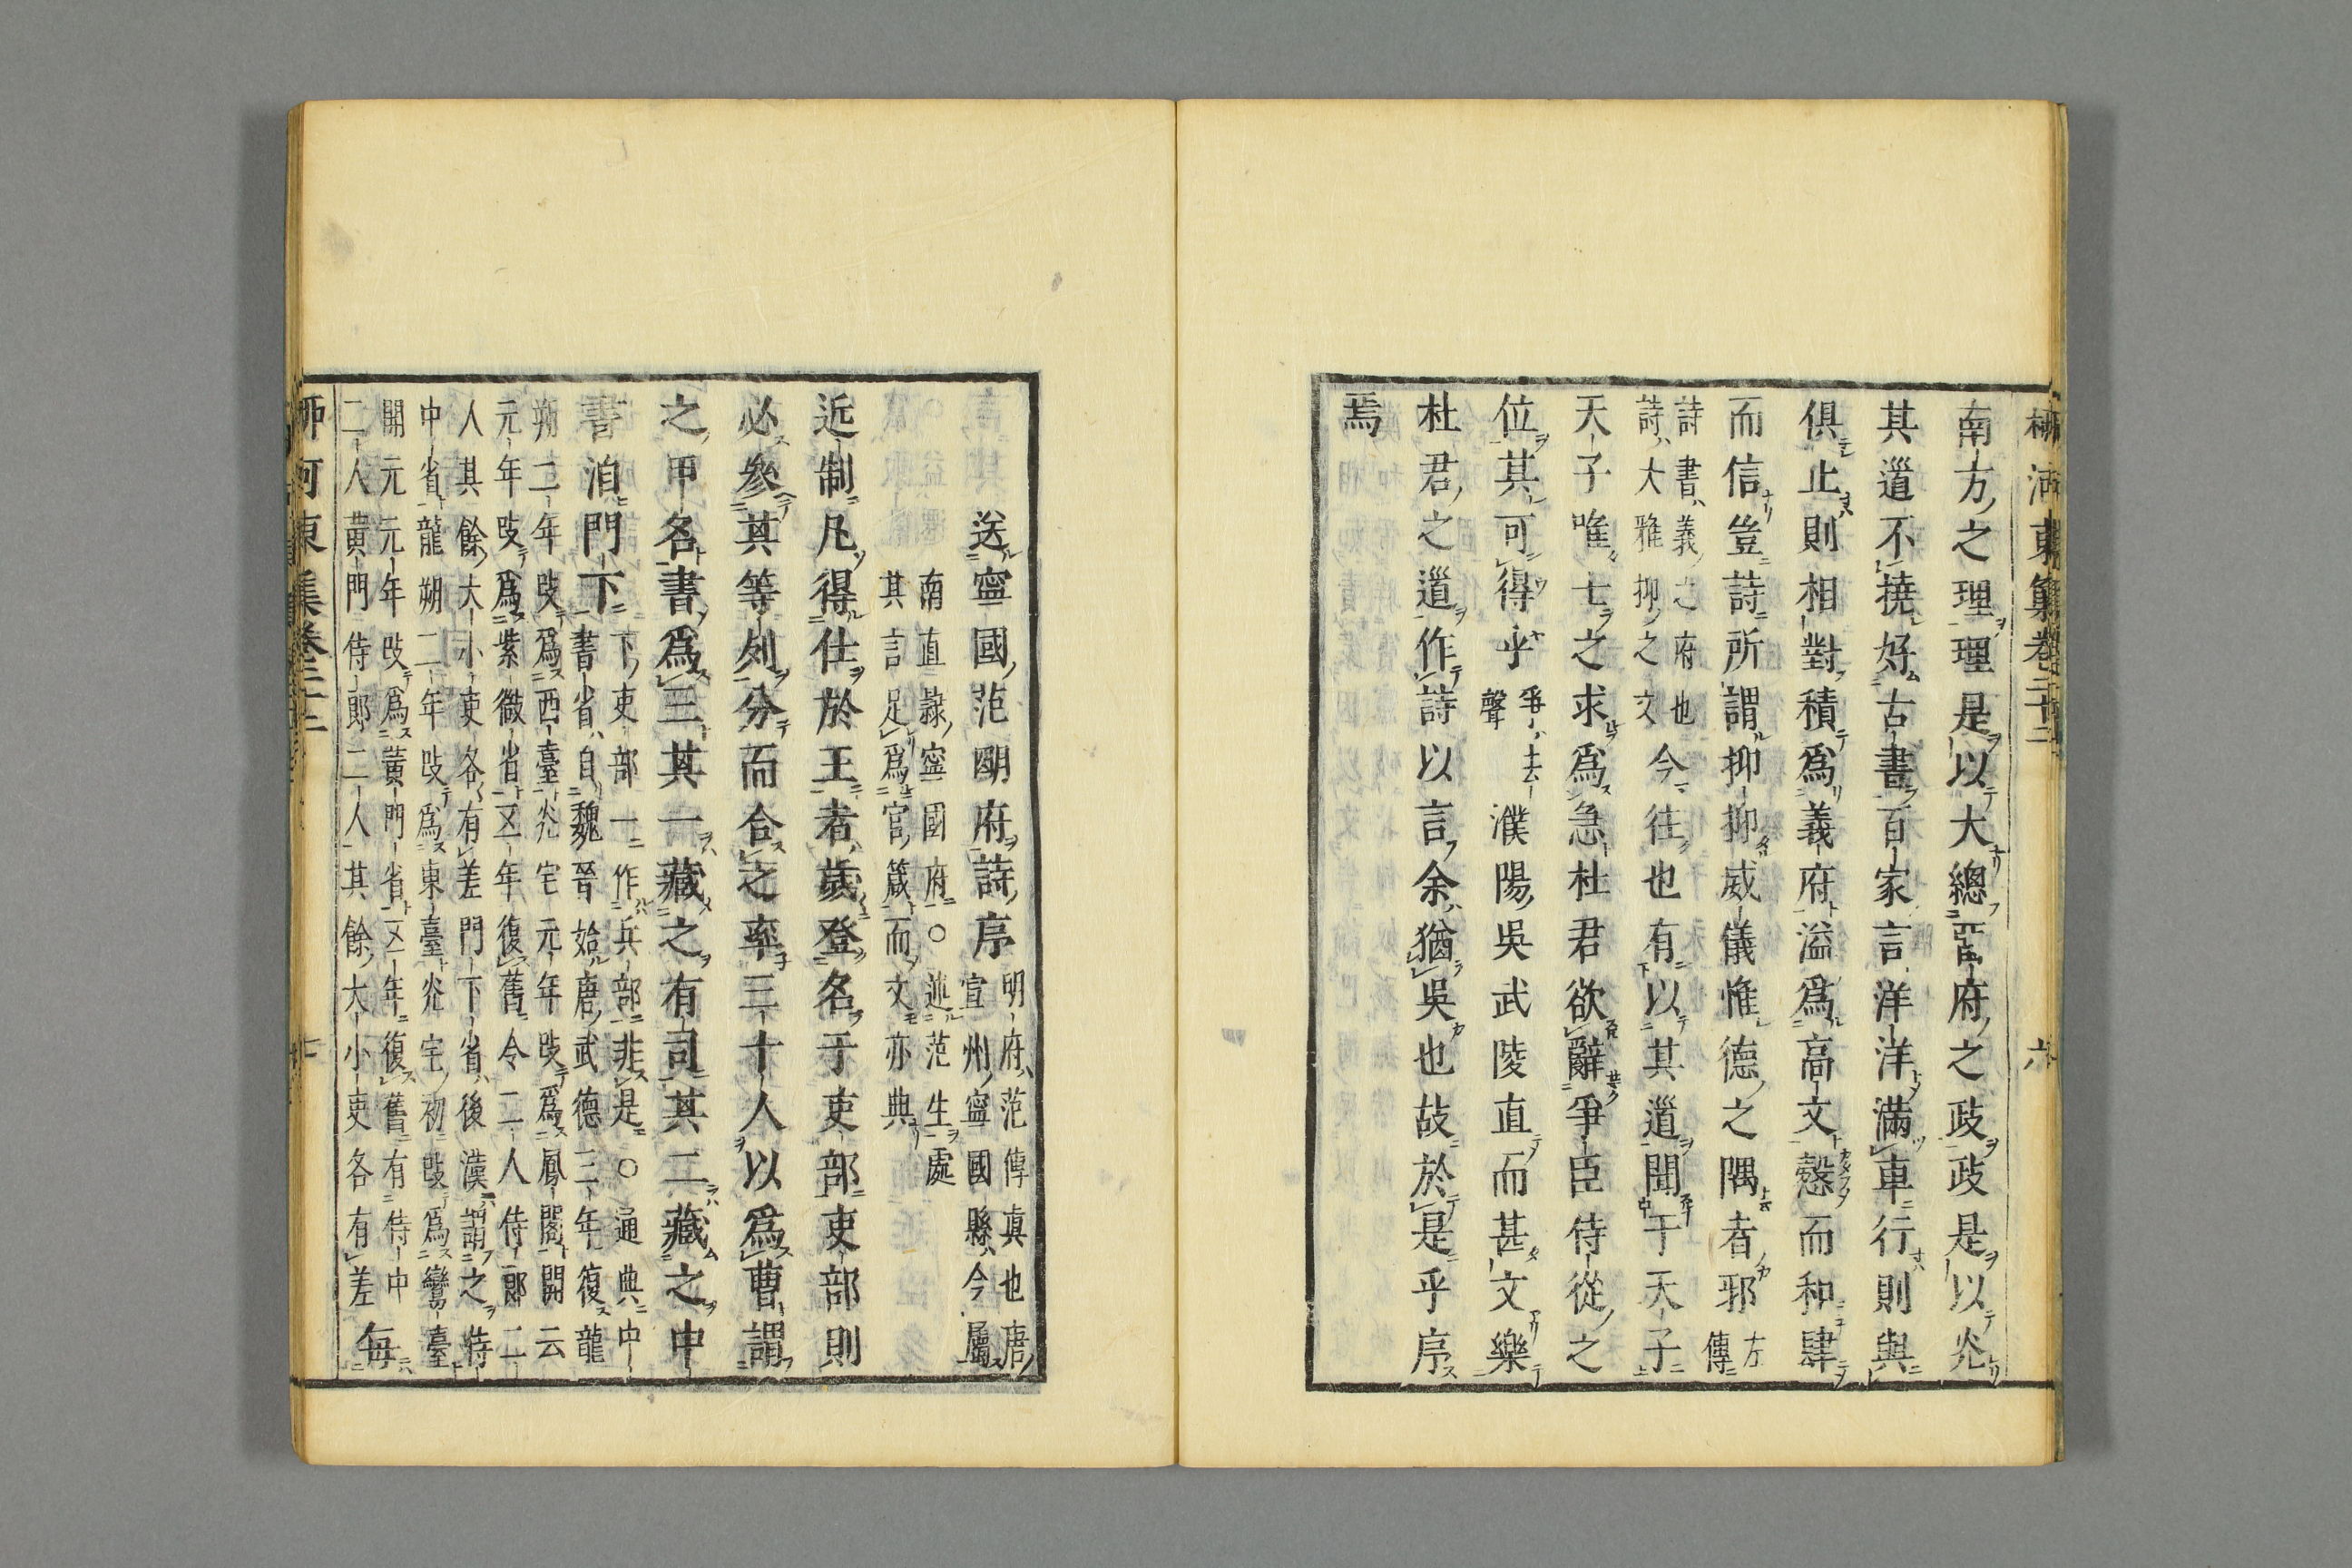 柳河東集卷二十二 六
南方之理理是以大總亞府之政政是以光
其道不撓好古書百家言洋洋滿車行則與
俱止則相對積爲義府溢爲高文慤而和肆
而信豈詩所謂抑抑威儀惟德之隅者耶左傳
詩書義之府也詩大雅抑之文今往也有以其道聞于天子
天子唯士之求爲急杜君欲辭爭臣侍從之
位其可得乎爭去聲濮陽吳武陵直而甚文樂
杜君之道作詩以言余猶吳也故於是乎序
焉
送寧國范明府詩序明府范傳真也唐宣州寧國縣今屬
南直隸寧國府○送范生處其言足爲官箴而文亦典
近制凡得仕於王者歲登名于吏部吏部則
必參其等列分而合之率三十人以爲曹謂
之甲名書爲三其一藏之有司其二藏之中
書洎門下下吏部一作兵部非是○通典中書省自魏晉始唐武德三年復龍
朔二年改爲西臺光宅元年改爲鳳閣開云
元年改爲紫微省五年復舊令二人侍郎二
人其餘大小吏各有差門下省後漢謂之侍
中省龍朔二年改爲東臺光宅初改爲鸞臺
開元元年改爲黃門省五年復舊有侍中
二人黃門侍郎二人其餘大小吏各有差每
柳河東集卷二十二 七